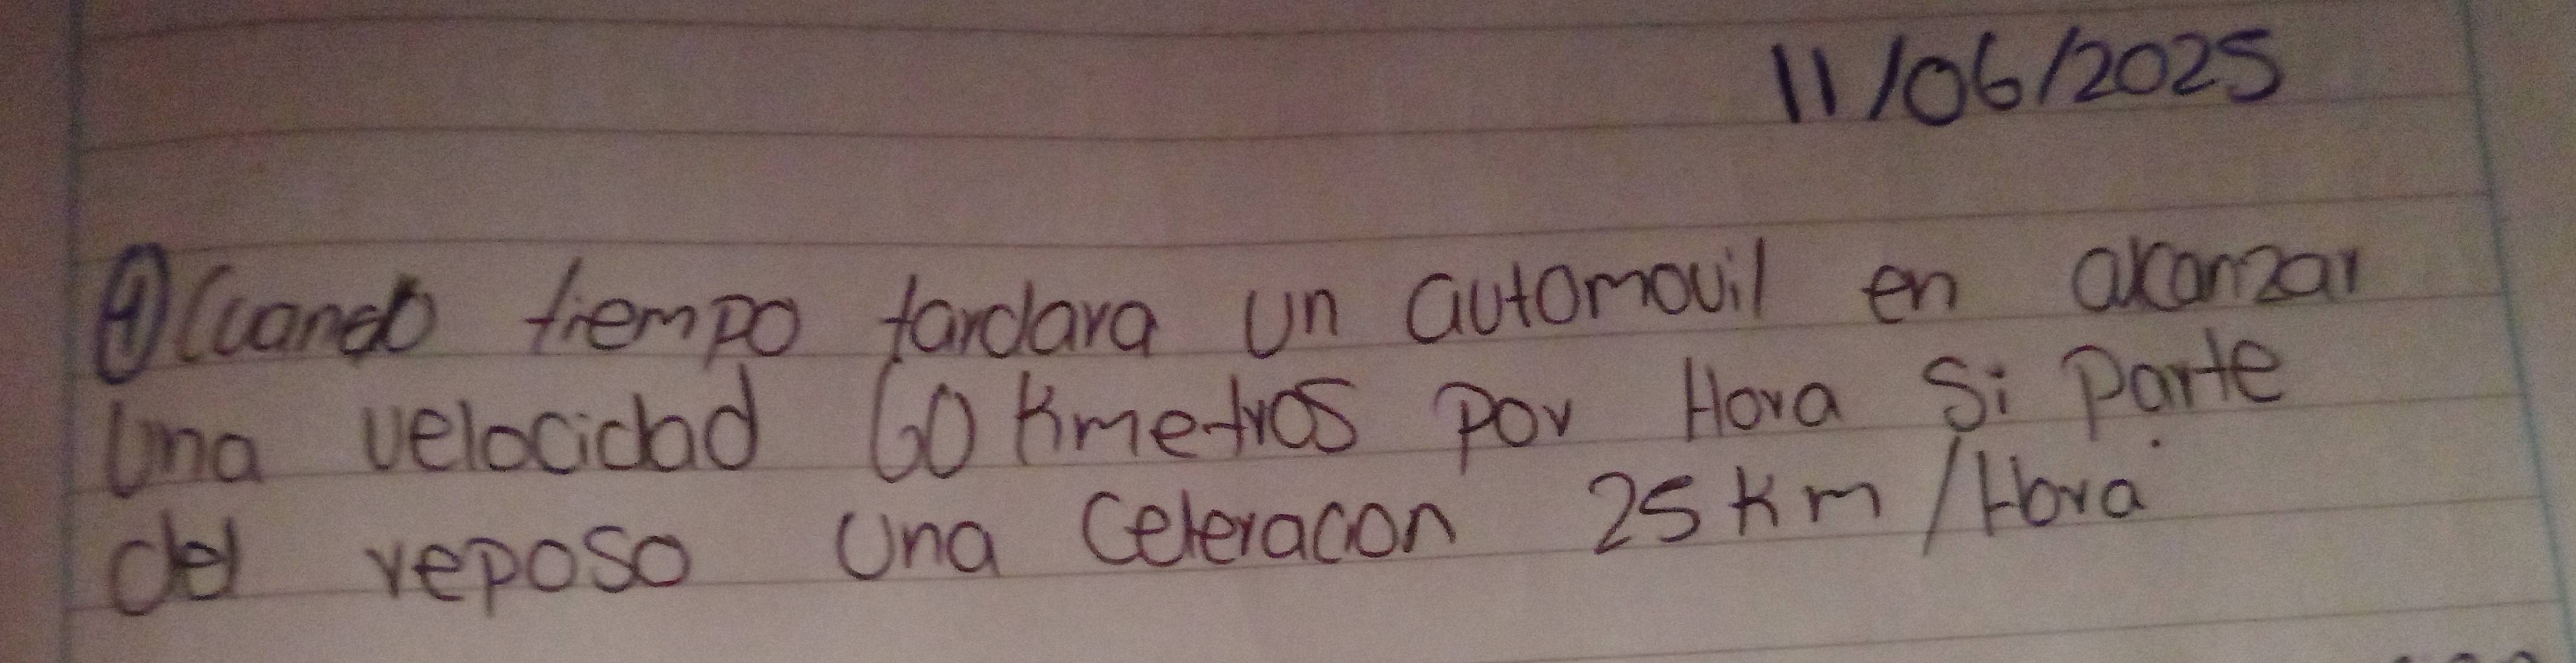 11/06/2025
① Cuando tiempo tardara un automovil en alcanzar
una velocidad 60 Kmetros por Hora Si parte
del reposo una Celeracon 25 Km/Hora